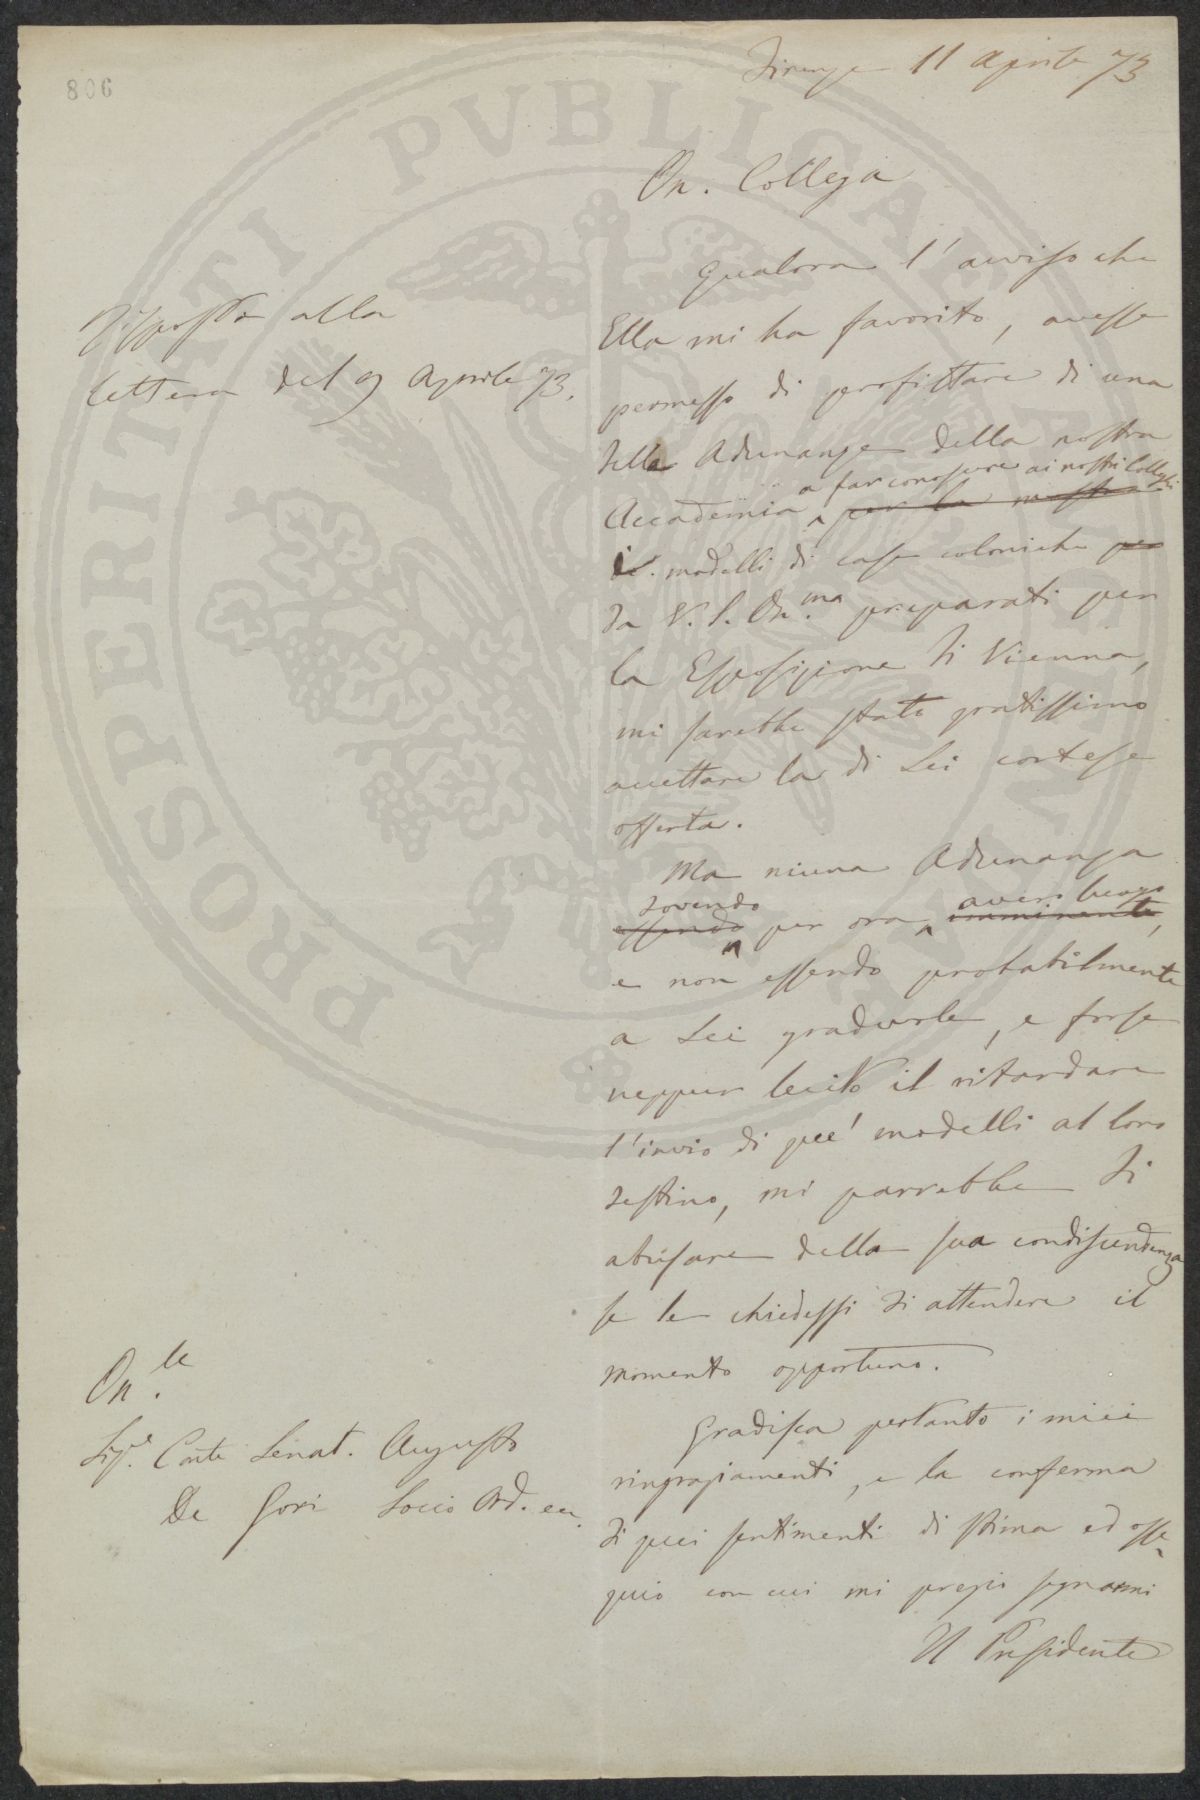 806
Firenze 11 Aprile 73
On. Collega
Risposta alla
lettera del 9 Aprile 73.
Qualora l'avviso che
Ella mi ha favorito, avesse
permesso di profittare di una
delle Adunanze della nostra
a far conoscere ai nostri Colleghi
Accademia per la mostra
i modelli di case coloniche per
da V. S. On.ma preparati per
la Esposizione di Vienna,
mi sarebbe stato gratissimo
accettare la di Lei cortese
offerta.
Ma niuna Adunanza
dovendo aver luogo
essendo per ora imminente,
e non essendo probabilmente
a Lei gradevole, e forse
neppur lecito il ritardare
l'invio di que' modelli al loro
destino, mi parrebbe di
abusare della sua condiscendenza
se le chiedessi di attendere il
momento opportuno.
Gradisca pertanto i miei
ringraziamenti, e la conferma
di quei sentimenti di stima ed osse
quio con cui mi pregio segnarmi
Il Presidente
On.le
Sig.e Conte Senat. Augusto
De Gori Socio Ord. ec.
PROSPERITATI PVBLICAE AVGENDAE